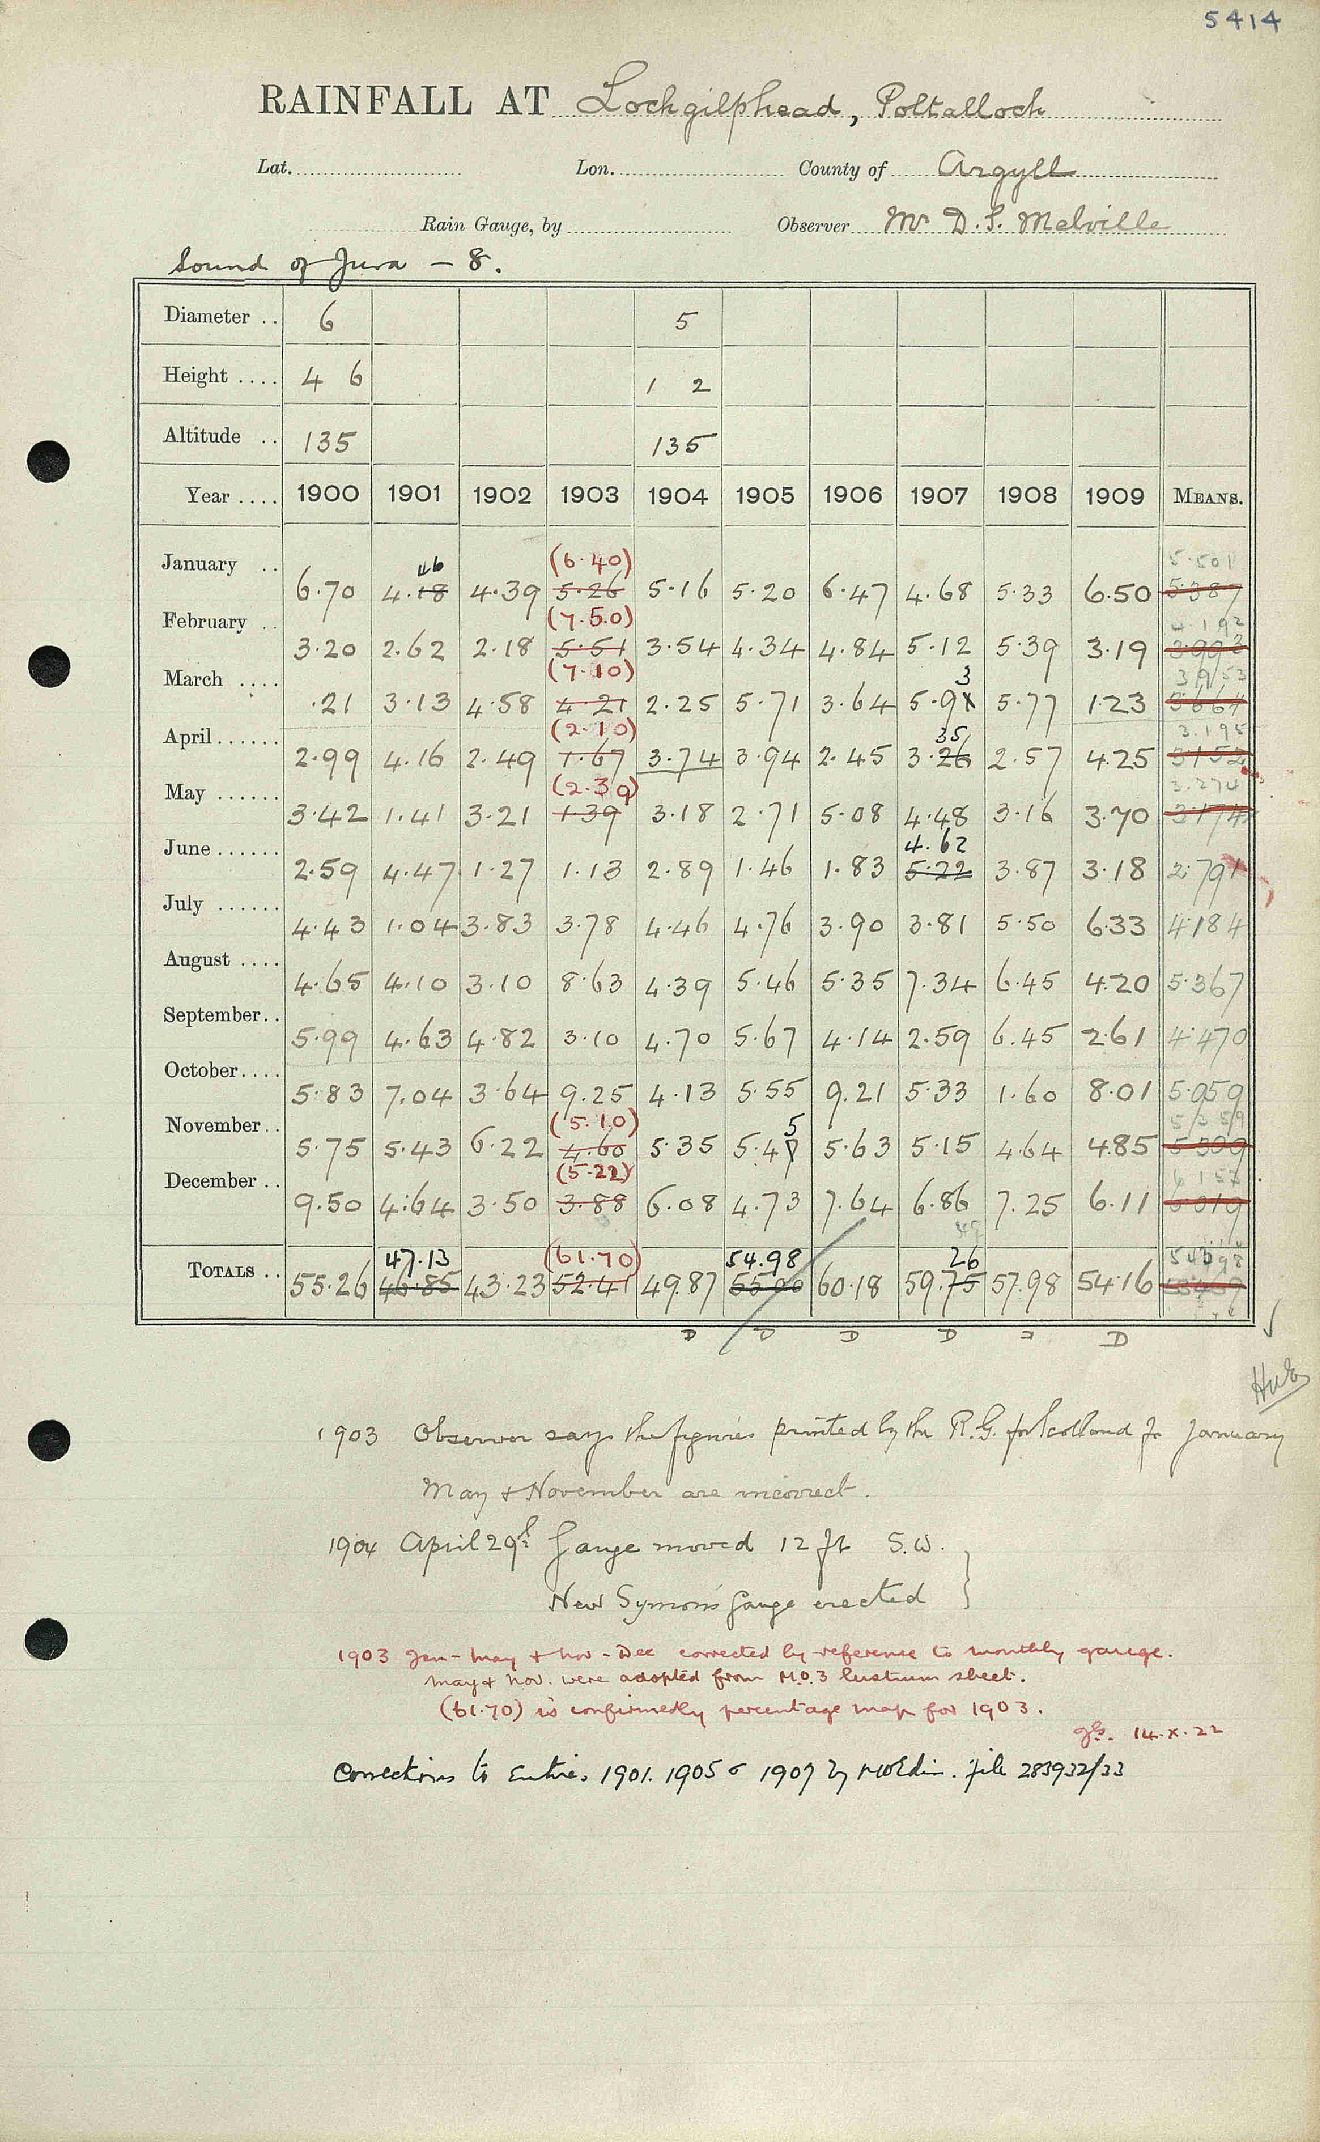 5414
RAINFALL AT Lochgilphead, Poltalloch
Lat. Lon. County of Argyll
Rain Gauge, by Observer Mr D. S. Melville
Sound of Jura – 8.
Diameter .. 6 5
Height .... 4 6 1 2
Altitude .. 135 135
Year .... 1900 1901 1902 1903 1904 1905 1906 1907 1908 1909 MEANS.
46 (6.40) 5.501
January .. 6.70 4.18 4.39 5.26 5.16 5.20 6.47 4.68 5.33 6.50 5.387
(7.50) 4.192
February .. 3.20 2.62 2.18 5.51 3.54 4.34 4.84 5.12 5.39 3.19 3.993
(7.10) 3
March .... .21 3.13 4.58 4.21 2.25 5.71 3.64 5.91 5.77 1.23 3.664
(2.10) 35 3.195
April ...... 2.99 4.16 2.49 1.67 3.74 3.94 2.45 3.26 2.57 4.25 3.152
(2.39) 3.274
May ...... 3.42 1.41 3.21 1.39 3.18 2.71 5.08 4.48 3.16 3.70 3.174
4.62
June ...... 2.59 4.47 1.27 1.13 2.89 1.46 1.83 5.22 3.87 3.18 2.791
July ...... 4.43 1.04 3.83 3.78 4.46 4.76 3.90 3.81 5.50 6.33 4.184
August .... 4.65 4.10 3.10 8.63 4.39 5.46 5.35 7.34 6.45 4.20 5.367
September .. 5.99 4.63 4.82 3.10 4.70 5.67 4.14 2.59 6.45 2.61 4.470
October .... 5.83 7.04 3.64 9.25 4.13 5.55 9.21 5.33 1.60 8.01 5.959
(5.10) 5
November .. 5.75 5.43 6.22 4.60 5.35 5.47 5.63 5.15 4.64 4.85 5.309
(5.22)
December .. 9.50 4.64 3.50 3.88 6.08 4.73 7.64 6.86 7.25 6.11 6.019
47.13 (61.70) 54.98 26
TOTALS .. 55.26 46.85 43.23 52.41 49.87 55.00 60.18 59.75 57.98 54.16
D D D D D D
1903 Observer says the figures printed by the R.G. for Scotland for January
May & November are incorrect.
1904 April 29th Gauge moved 12 ft S.W.
New Symons Gauge erected
1903 Jan - May & Nov - Dec corrected by reference to monthly gauge.
May & Nov. were adopted from M.O.3 lustrum sheet.
(61.70) is confirmed by percentage map for 1903.
14.X.22
Corrections to Entries 1901. 1905 & 1907 by file 283932/33